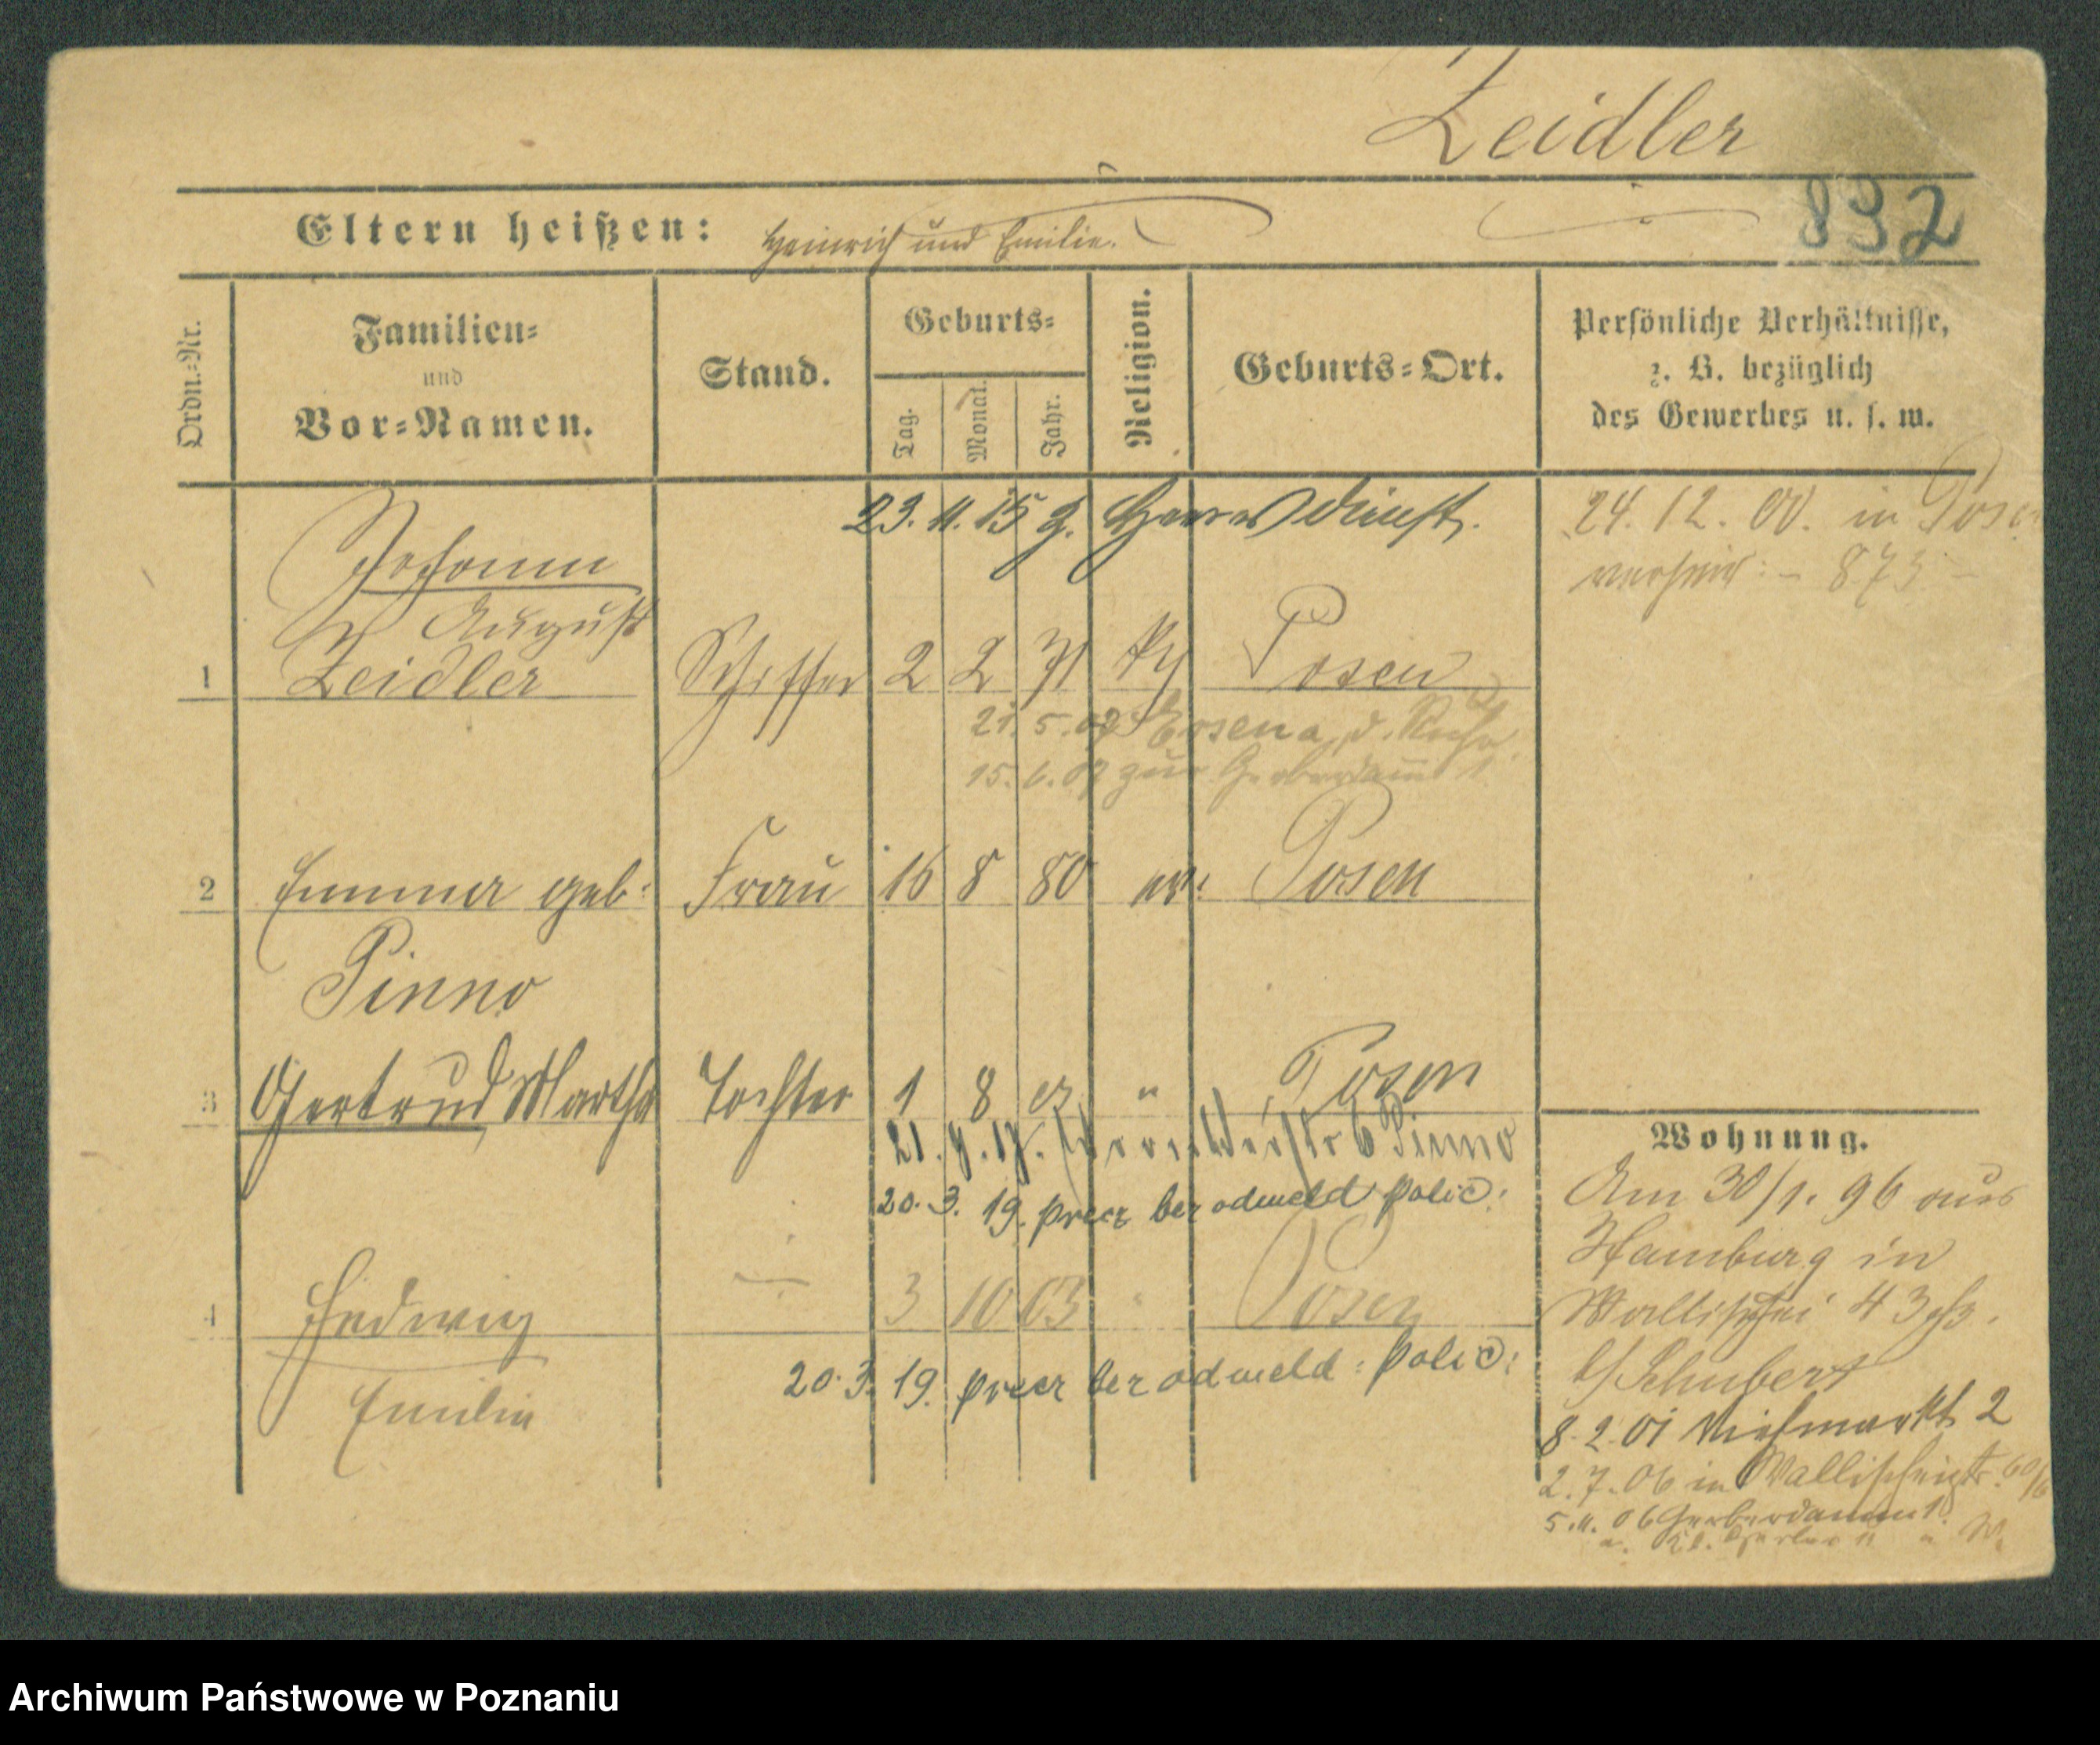 Zeidler
832
Eltern heißen: Heinrich und Emilie.
Ordn.=Nr.
Familien=
und
Vor=Namen.
Stand.
Geburts=
Tag.
Monat.
Jahr.
Religion.
Geburts=Ort.
Persönliche Verhältnisse,
z. B. bezüglich
des Gewerbes u. s. w.
23. 11. 15 z. Heeresdienst.
24. 12. 00. in Posen
verheir: – 873 –
Johann
August
1 Zeidler Schiffer 2 2 71 Posen
21. 5. 07 Essen a. d. Ruhr
15. 6. 07 zur Gerberdamm 1
2 Emma geb: Frau 16 8 80 ev: Posen
Pinno
3 Gertrud Martha Tochter 1 8 02 " Posen
21. 17. 6 Pinno
20. 3. 19. precz bez odmeld polic:
4 Hedwig — 3 10 03 " Posen
Emilie
20. 3. 19. precz bez odmeld: polic:
Wohnung.
Am 30/1. 96 aus
Hamburg in
Wallischei 43
b/ Schubert
8. 2. 01 Viehmarkt 2
2. 7. 06 in Wallischeistr.
5. 11. 06 Gerberdamm 1.